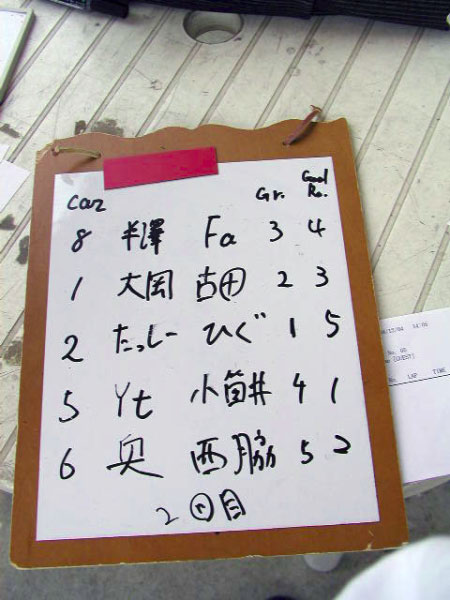 Car Gr. Goal Ro.
8 半澤 Fa 3 4
1 大岡 古田 2 3
2 たっしー ひぐ 1 5
5 Yt 小筒井 4 1
6 奥 西脇 5 2
2回目
No. LAP TIME